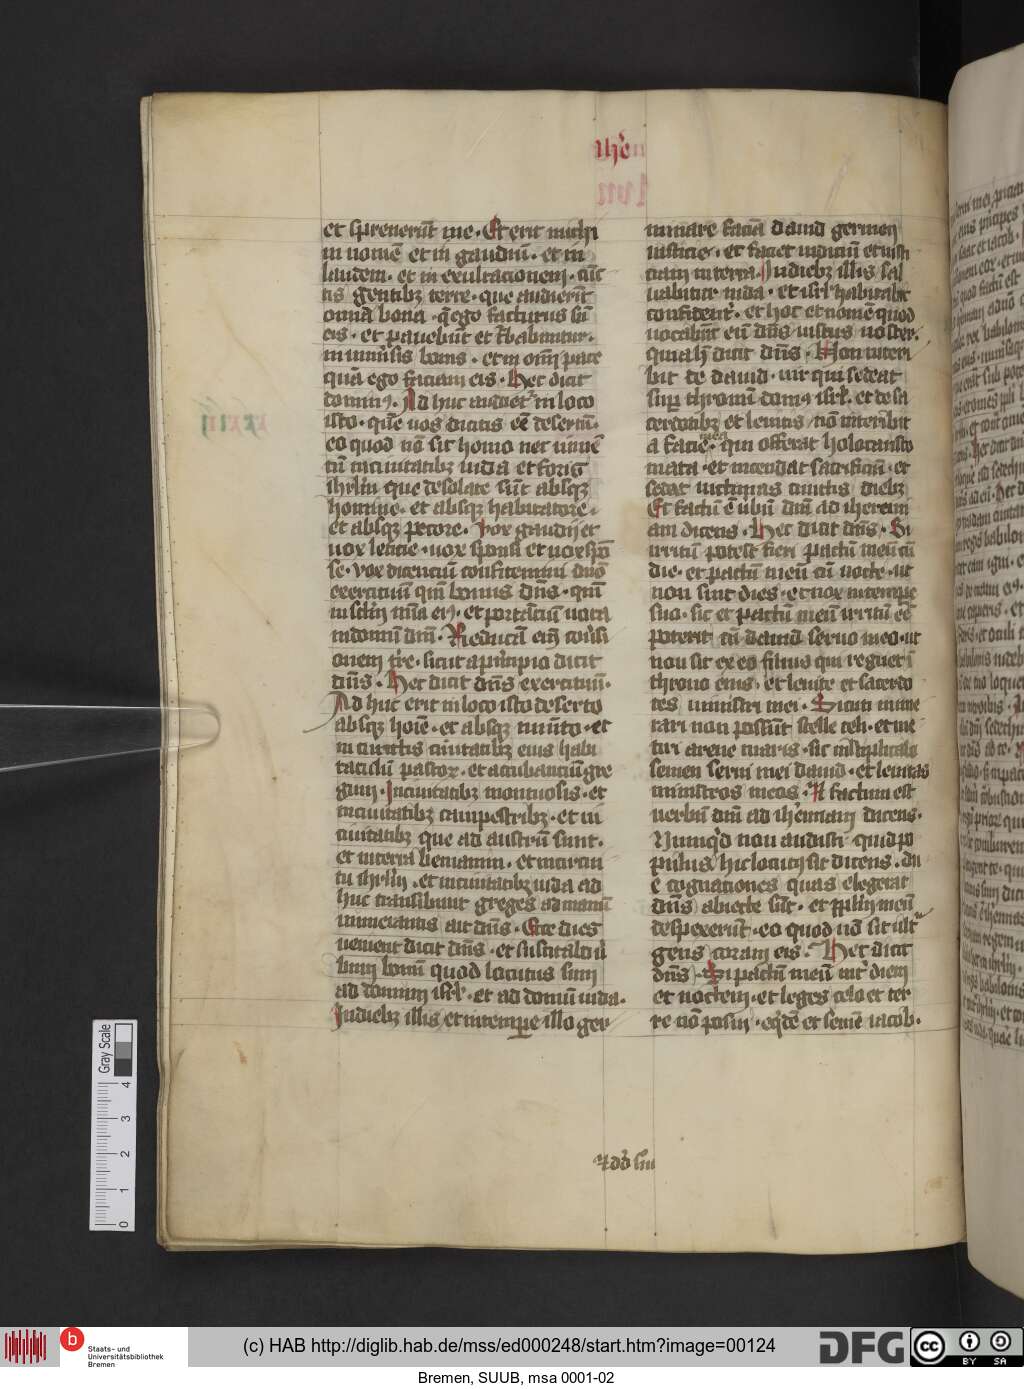 iher
et spreverunt me. Et erit michi
in nomen et in gaudium. et in
laudem. et in exultacionem. cunc
tis gentibz terre. que audierint
omnia bona. que ego facturus sum
eis. et pavebunt et turbabuntur.
in universis bonis. et in omni pace
quam ego faciam eis. Hec dicit
dominus. Ad huc audietur in loco
isto. quem vos dicitis esse desertum.
eo quod non sit homo nec iumentum
in civitatibz iuda et foris
iherusalem que desolate sunt absqz
homine. et absqz habitatore.
et absqz pecore. Vox gaudii et
vox leticie. vox sponsi et vox spon
se. vox dicencium confitemini domino
exercituum quoniam bonus dominus. quoniam
in eternum misericordia eius. et portancium vota
in domum domini. Reducam enim conversi
onem terre. sicut a principio dicit
dominus. Hec dicit dominus exercituum.
Ad huc erit in loco isto deserto
absqz homine. et absqz iumento. et
in cunctis civitatibz eius habi
taculum pastorum. et accubancium gre
gum. In civitatibz montuosis. et
in civitatibz campestribz. et in
civitatibz que ad austrum sunt.
et in terra beniamin. et in circui
tu iherusalem. et in civitatibz iuda ad
huc transibunt greges ad manum
numerantis ait dominus. Ecce dies
venient dicit dominus. et suscitabo v
bum bonum quod locutus sum
ad domum israel. et ad domum iuda.
In diebz illis et in tempore illo ger
minare faciam david germen
iusticie. et faciet iudicium et iusti
ciam in terra. In diebz illis sal
vabitur iuda. et israel habitabit
confidenter. et hoc est nomen quod
vocabunt eum dominus iustus noster.
quia hec dicit dominus. Non interi
bit de david. vir qui sedeat
super thronum domus israel. et de sa
cerdotibz et levitis non interibit
a facie mea qui offerat holocausto
mata. et incendat sacrificium. et
cedat victimas cunctis diebz
Et factum est verbum domini ad iheremi
am dicens. Hec dicit dominus. Si
irritum potest fieri pactum meum cum
die. et pactum meum cum nocte. ut
non sint dies. et nox in tempore
suo. sic et pactum meum irritum esse
poterit cum david servo meo. ut
non sit ex eo filius qui regnet in
throno eius. et levite et sacerdo
tes ministri mei. Sicuti nume
rari non possunt stelle celi. et me
tiri arene maris. sic multiplicabo
semen servi mei david. et levitas
ministros meos. Et factum est
verbum domini ad iheremiam dicens.
Numquid non audisti quid po
pulus hic locutus sit dicens. Du
e cognationes quas elegerat
dominus abiecte sunt. et populum meum
despexerunt. eo quod non sit ultra
gens coram eis. Hec dicit
dominus. Si pactum meum inter diem
et noctem. et leges celo et ter
re non posui. equidem et semen iacob.
Gray Scale
4
3
2
1
0
b
Staats- und
Universitätsbibliothek
Bremen
(c) HAB http://diglib.hab.de/mss/ed000248/start.htm?image=00124
DFG
cc
BY SA
Bremen, SUUB, msa 0001-02